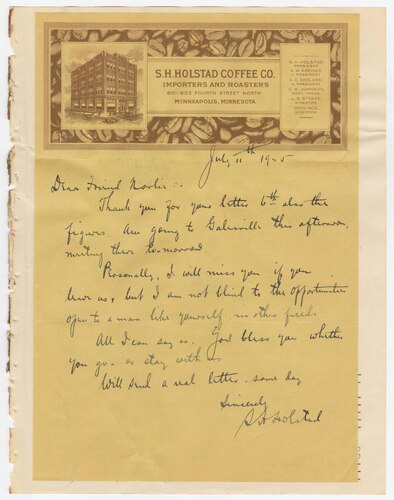 S.H. HOLSTAD COFFEE CO.
IMPORTERS AND ROASTERS
601-603 FOURTH STREET NORTH
MINNEAPOLIS, MINNESOTA
S. H. HOLSTAD
PRESIDENT
V. PRESIDENT
V. PRESIDENT
O. W. JOHNSON
SECY-TREAS.
DIRECTOR
DIRECTOR
July 11th 1925
Dear Friend
Thank you for yours letter 6th also the
figures. Am going to Galesville this afternoon,
meeting there to-morrow.
Personally, I will miss you if you
leave us, but I am not blind to the opportunities
open to a man like yourself in other fields
All I can say is, God bless you whether
you go - or stay with us.
Will send a real letter some day
Sincerely
S H Holstad